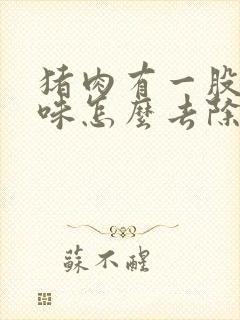 猪肉有一股
味怎麽去除
蘇不醒